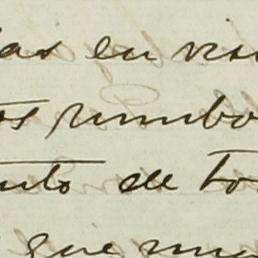 as en vis
os rumbo
nto de to
que mu